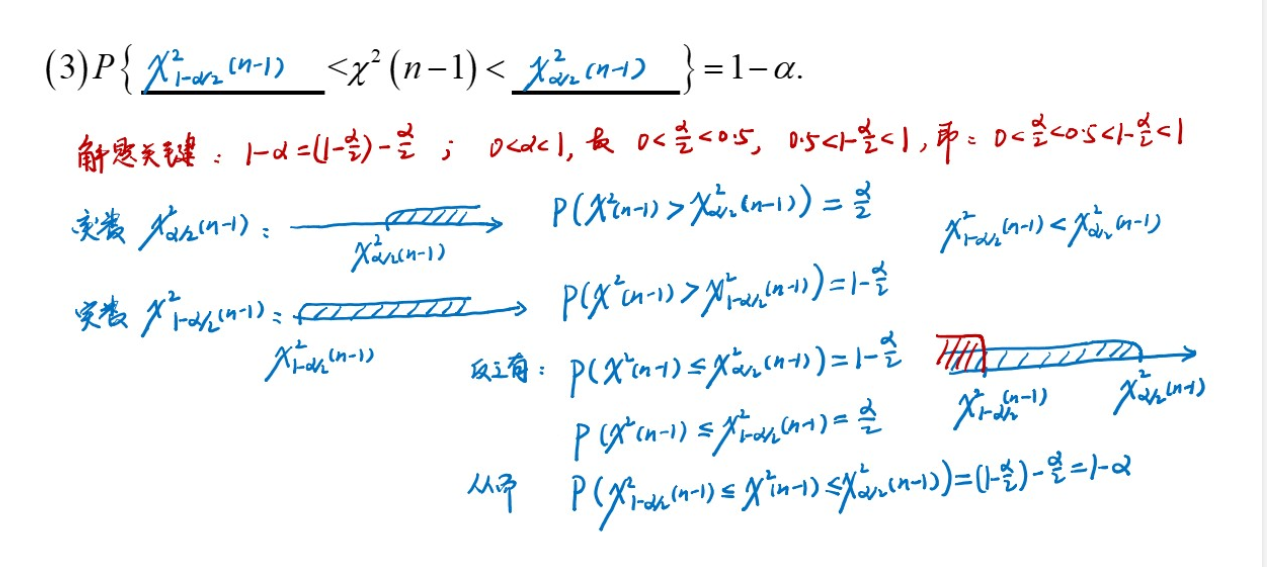 (3)P{ χ²₁₋α/₂(n-1) <χ²(n−1)< χ²α/₂(n-1) }=1−α.
解题关键：1-α=(1-α/2)-α/2；0<α<1, 故 0<α/2<0.5, 0.5<1-α/2<1, 即：0<α/2<0.5<1-α/2<1
实数 χ²α/₂(n-1)： χ²α/₂(n-1) P(χ²(n-1)>χ²α/₂(n-1))=α/2 χ²₁₋α/₂(n-1)<χ²α/₂(n-1)
实数 χ²₁₋α/₂(n-1)： χ²₁₋α/₂(n-1) P(χ²(n-1)>χ²₁₋α/₂(n-1))=1-α/2
反之有：P(χ²(n-1)≤χ²α/₂(n-1))=1-α/2 χ²₁₋α/₂(n-1) χ²α/₂(n-1)
P(χ²(n-1)≤χ²₁₋α/₂(n-1)=α/2
从而 P(χ²₁₋α/₂(n-1)≤χ²(n-1)≤χ²α/₂(n-1))=(1-α/2)-α/2=1-α